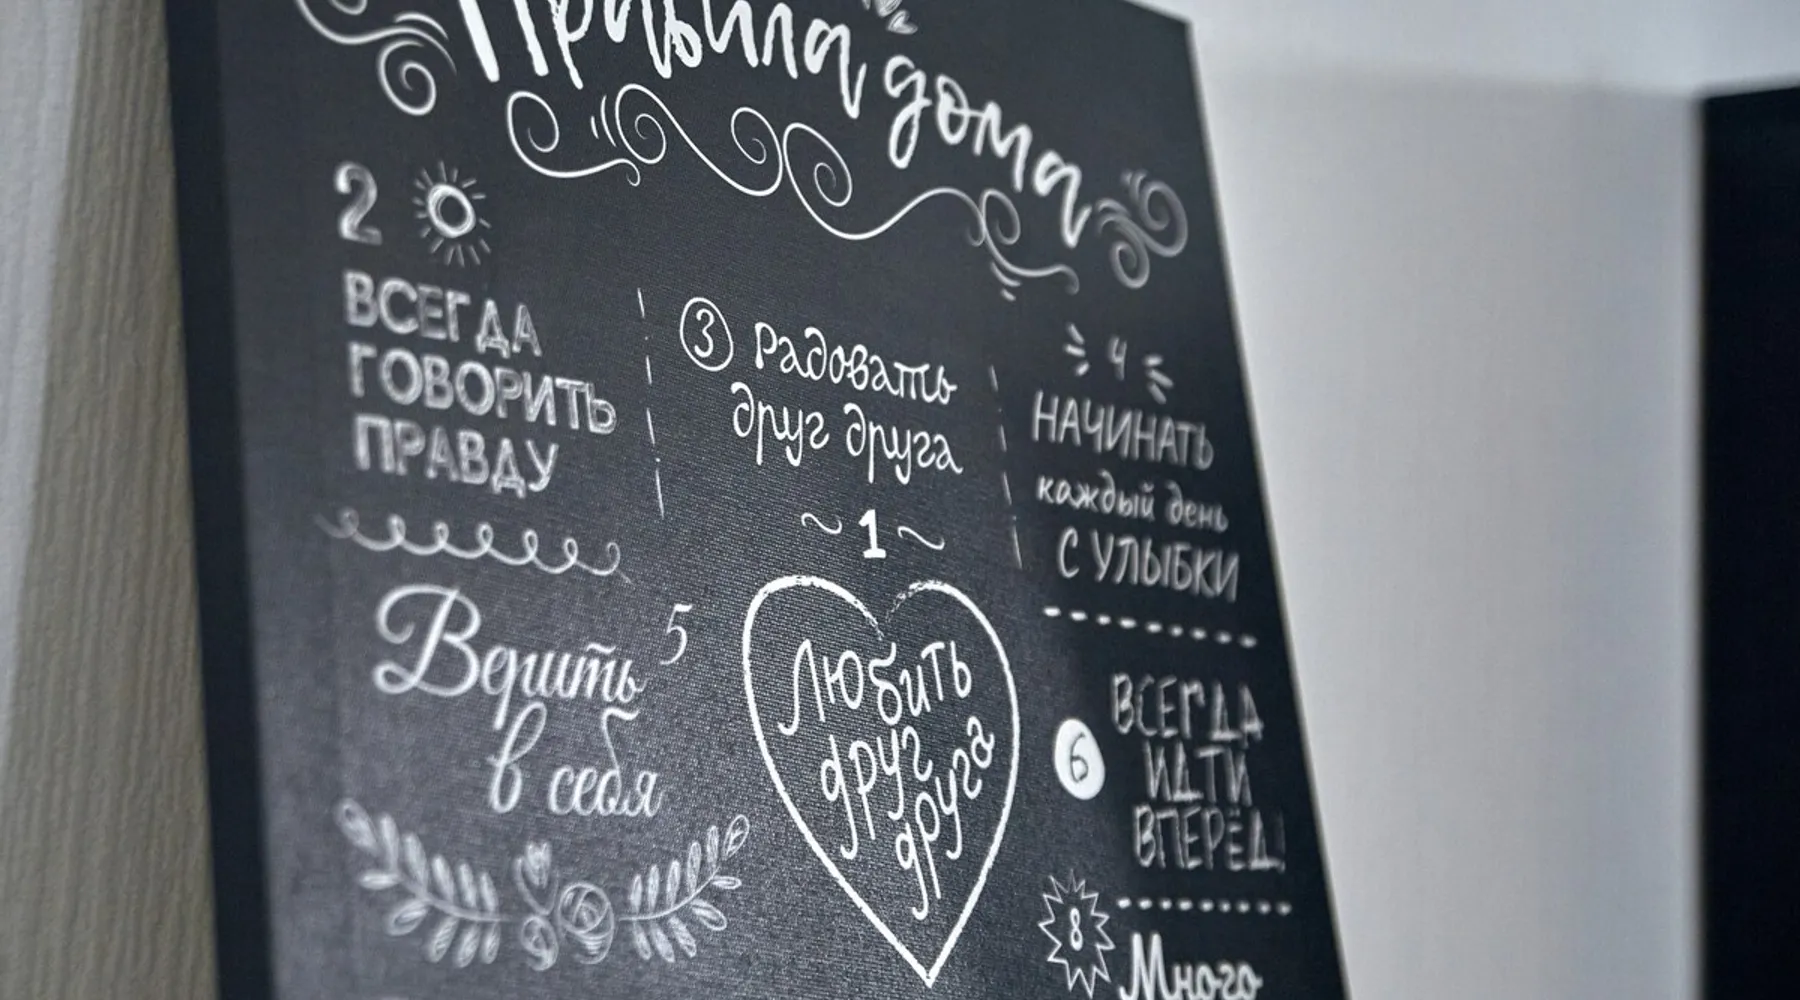 Правила дома
2
ВСЕГДА
ГОВОРИТЬ
ПРАВДУ
3 Радовать
друг друга
4
НАЧИНАТЬ
каждый день
С УЛЫБКИ
1
ЛЮБИТЬ
друг
друга
5
Верить
в себя
6
ВСЕГДА
ИДТИ
ВПЕРЁД!
8
Много